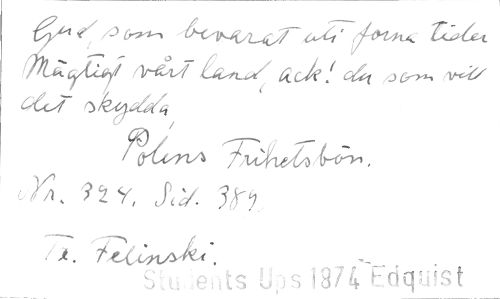 Gud, som bevarat uti forna tider
Mägtigt vårt land, ack! du som vill
det skydda,
Polens Frihetsbön.
Nr. 324. Sid. 389
Te. Felinski.
Students Ups 1874 Edquist